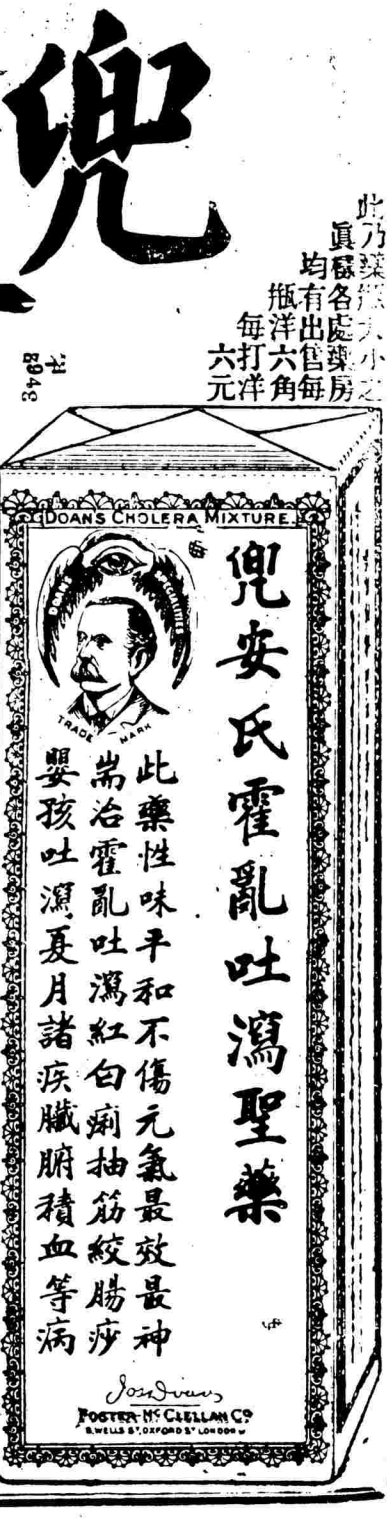 兜
此乃藥瓶大小之
眞樣各處藥房
均有出售每
瓶洋六角
每打洋
六元
DOAN'S CHOLERA MIXTURE.
DOANS
TRADE MARK
兜安氏霍亂吐瀉聖藥
此藥性味平和不傷元氣最效最神
耑治霍亂吐瀉紅白痢抽筋絞腸痧
嬰孩吐瀉夏月諸疾臟腑積血等病
FOSTER-McCLELLAN Co
8, WELLS ST, OXFORD ST LONDON W